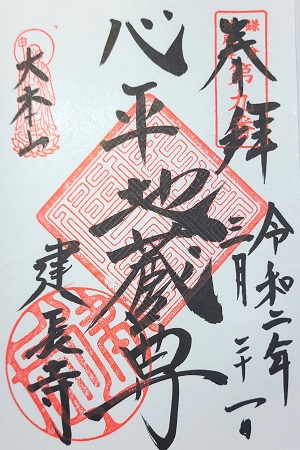 奉拝
第九番
令和二年
三月二十一日
心平地蔵尊
大本山
建長寺